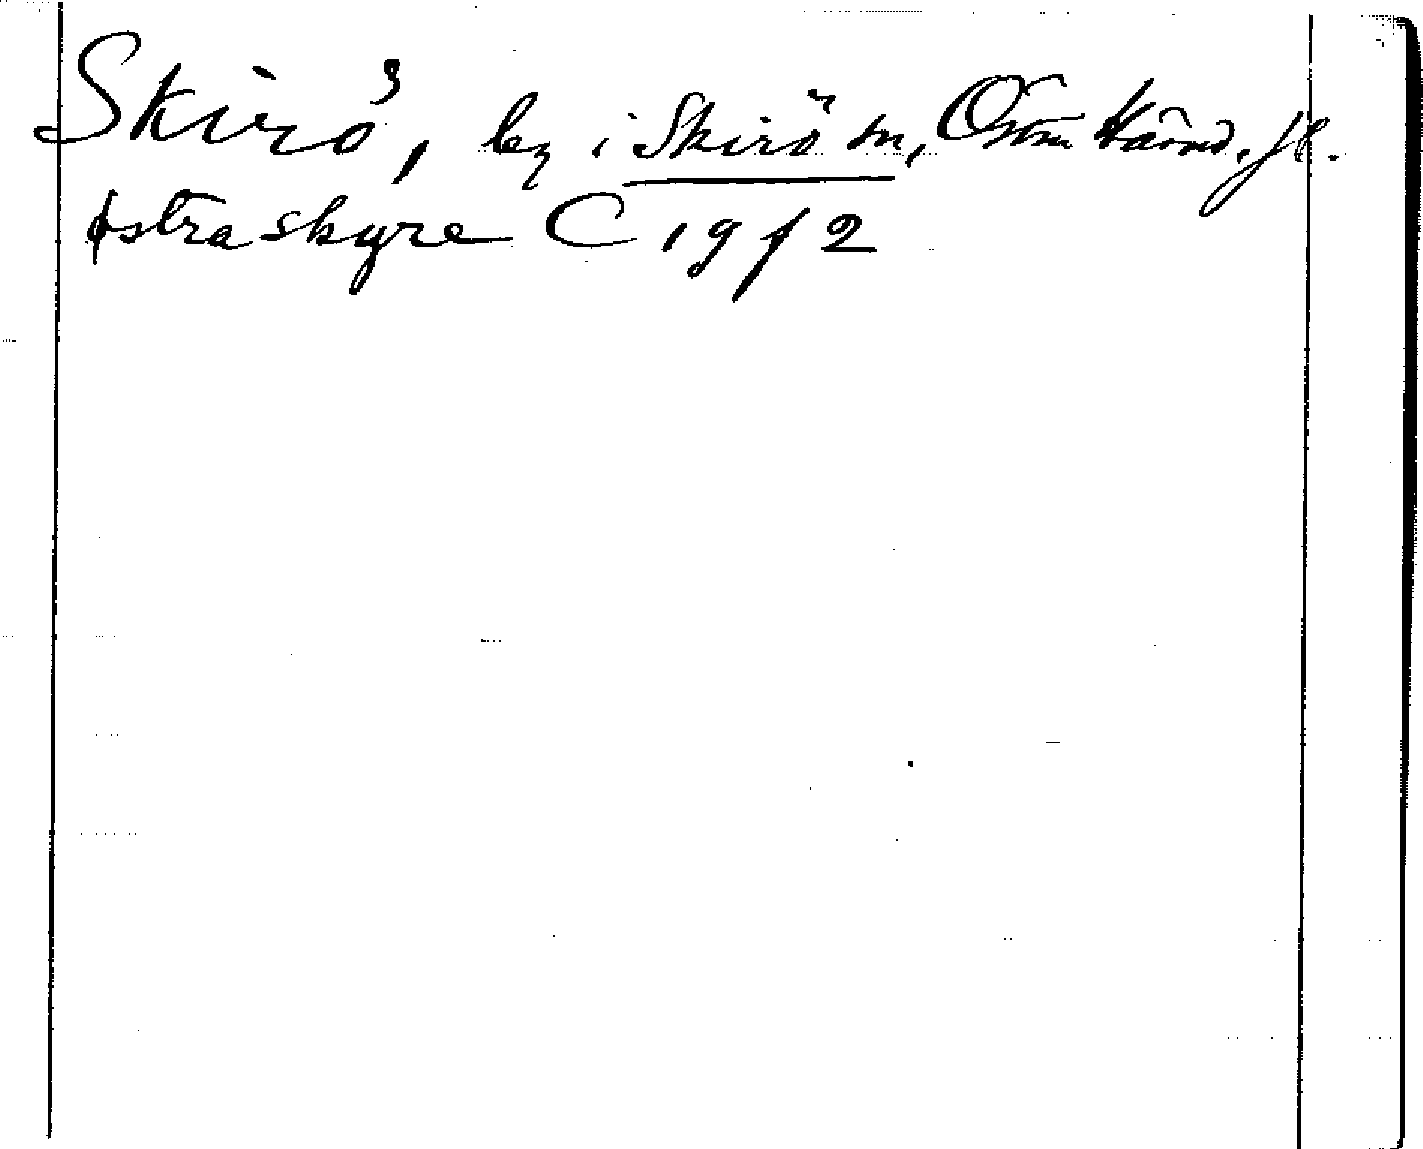 Skirö, by i Skirö sn, Östra härad. Jk.
østra skyre C 19 f 2